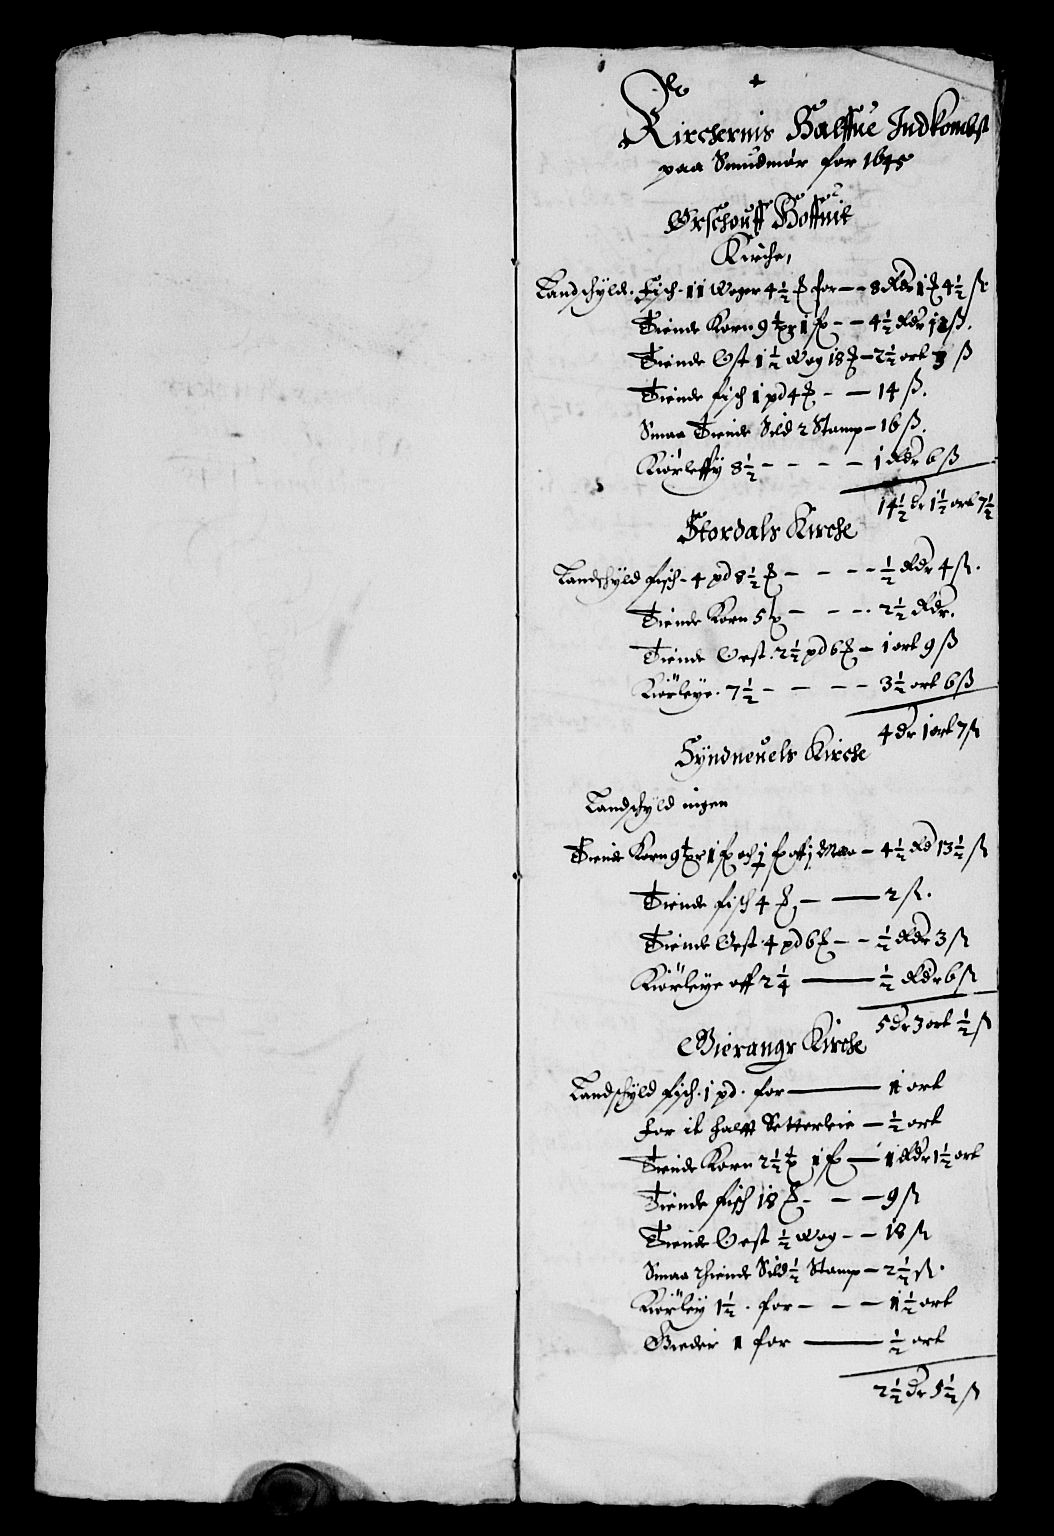 +
Kirchernis Halffue Indkombst
paa Sundmør for 1645
Ørschouff Hoffuit
Kirche,
Landschyld. Fisch. 11 Woger 4½ ℔ for — 8 Rdr 1 ℔ 4½ ß
Tiende Korn 9 tpr 1 fp — — 4½ Rdr 12 ß.
Tiende Ost 1½ Wog 18 ℔ — 2½ ort 3 ß
Tiende fisch 1 pd 4 ℔ — — 14 ß.
Smaa Tiende Sild 2 Stamp — 16 ß.
Kiörleffy 8½ — — — — 1 Rdr 6 ß
14½ dr 1½ ort 7½
Stordals Kirche
Landschyld fisch — 4 pd 8½ ℔ — — — — ½ Rdr 4 ß.
Tiende Korn 5 tp — — — 2½ Rdr.
Tiende Oest. 2½ pd 6 ℔ — 1 ort 9 ß
Kiörleye. 7½ — — — — 3½ ort 6 ß
4 dr 1 ort 7 ß
Syndneuels Kirche
Landschyld ingen
Tiende Korn 9 tpr 1 fp och 1 fp off 1 Mæo — 4½ Rd 13½ ß
Tiende fisch 4 ℔, — — 2 ß.
Tiende Oest 4 pd 6 ℔ — — ½ Rdr 3 ß
Kiörleye off 2¼ — ½ Rdr 6 ß
5 dr 3 ort ½ ß
Gierangr Kirche
Landschyld fisch. 1 pd. for — 1 ort
for it halfft Setterleie — ½ ort
Tiende Korn 2½ tp 1 fp — 1 Rdr 1½ ort
Tiende fisch 18 ℔ — — — 9 ß
Tiende Oest ½ Wog — — 18 ß
Smaa thiende Sild ½ Stamp — 2½ ß.
Kiörley 1½. for — — — 1½ ort
Gieder 1 for — ½ ort
2½ dr 5½ ß